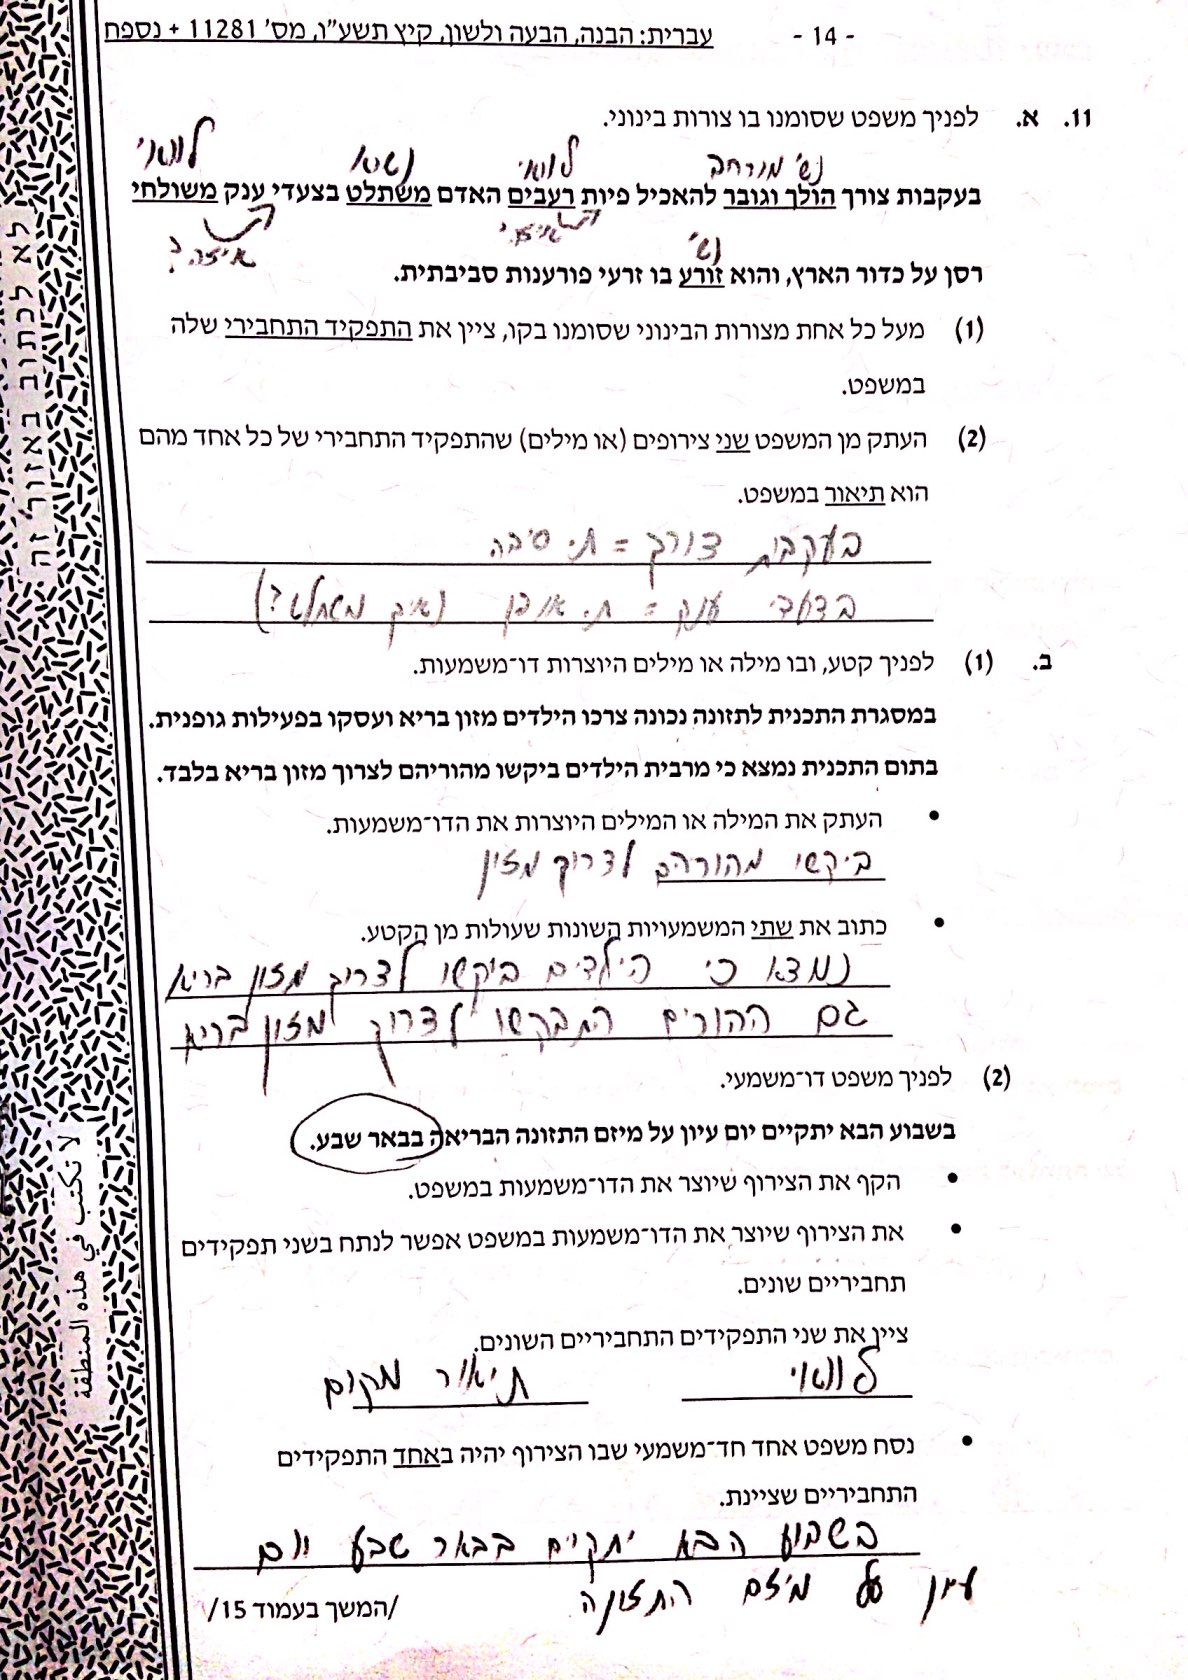 - 14 - עברית: הבנה, הבעה ולשון, קיץ תשע"ו, מס' 11281 + נספח
11. א. לפניך משפט שסומנו בו צורות בינוני.
נש' מורחב לוואי נשוא לוואי
בעקבות צורך הולך וגובר להאכיל פיות רעבים האדם משתלט בצעדי ענק משולחי
איזה?
נש'
רסן על כדור הארץ, והוא זורע בו זרעי פורענות סביבתית.
(1) מעל כל אחת מצורות הבינוני שסומנו בקו, ציין את התפקיד התחבירי שלה
במשפט.
(2) העתק מן המשפט שני צירופים (או מילים) שהתפקיד התחבירי של כל אחד מהם
הוא תיאור במשפט.
בעקבות צורך = ת. סיבה
בצעדי ענק = ת. אופן (איך משתלט?)
ב. (1) לפניך קטע, ובו מילה או מילים היוצרות דו־משמעות.
במסגרת התכנית לתזונה נכונה צרכו הילדים מזון בריא ועסקו בפעילות גופנית.
בתום התכנית נמצא כי מרבית הילדים ביקשו מהוריהם לצרוך מזון בריא בלבד.
• העתק את המילה או המילים היוצרות את הדו־משמעות.
ביקשו מהוריהם לצרוך מזון
• כתוב את שתי המשמעויות השונות שעולות מן הקטע.
נמצא כי הילדים ביקשו לצרוך מזון בריא
גם ההורים התבקשו לצרוך מזון בריא
(2) לפניך משפט דו־משמעי.
בשבוע הבא יתקיים יום עיון על מיזם התזונה הבריאה בבאר שבע.
• הקף את הצירוף שיוצר את הדו־משמעות במשפט.
• את הצירוף שיוצר את הדו־משמעות במשפט אפשר לנתח בשני תפקידים
תחביריים שונים.
ציין את שני התפקידים התחביריים השונים.
לוואי תיאור מקום
• נסח משפט אחד חד־משמעי שבו הצירוף יהיה באחד התפקידים
התחביריים שציינת.
בשבוע הבא יתקיים בבאר שבע יום
עיון על מיזם התזונה
/המשך בעמוד 15/
לא לכתוב באזור זה
لا تكتب في هذه المنطقة